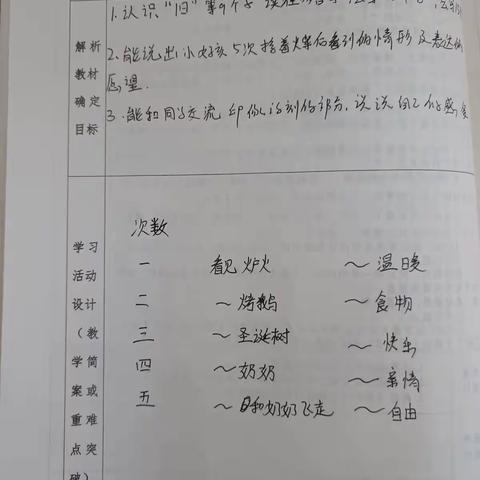 解析
教材
确定
目标
1.认识“旧”等9个字
2.能说出小女孩5次擦着火柴后看到的情形及表达的
愿望.
3.能和同学交流印象深刻的部分,说说自己的感受
学习
活动
设计
(教
学简
案或
重难
点突
破)
次数
一 看见炉火 ~温暖
二 ~烤鹅 ~食物
三 ~圣诞树 ~快乐
四 ~奶奶 ~亲情
五 ~和奶奶飞走 ~自由